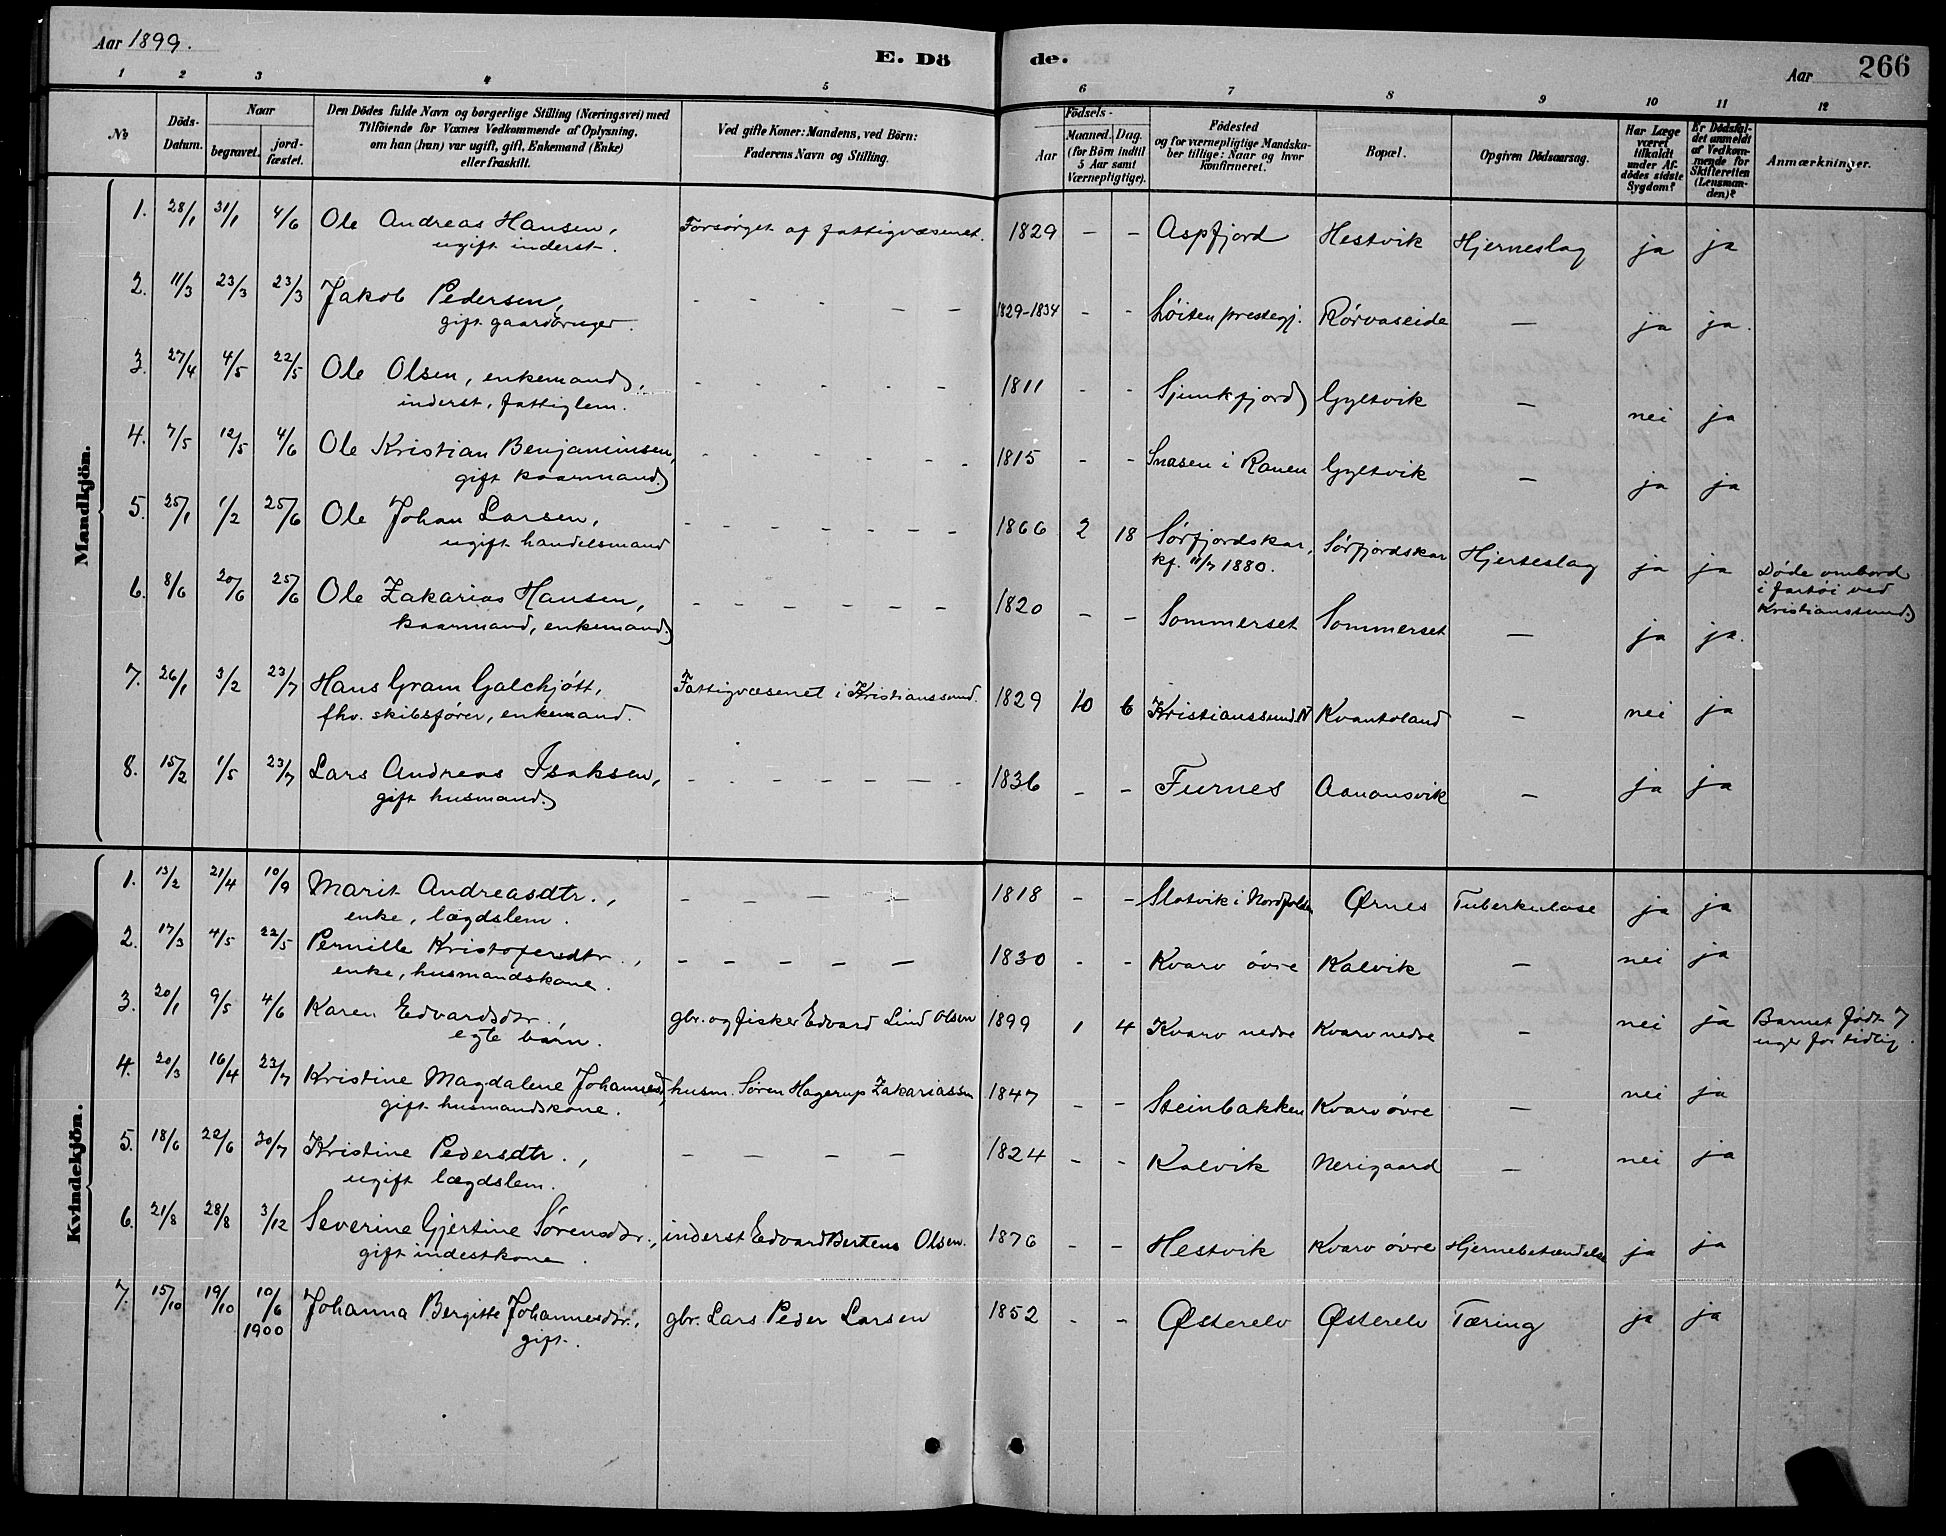 Aar 1899.
E. Dö
de.
Aar
266
1 2 3 4 5 6 7 8 9 10 11 12
No
Döds-Datum.
Naar
begravet.
jord-fæstet.
Den Dödes fulde Navn og borgerlige Stilling (Næringsvei) med
Tilföiende for Voxnes Vedkommende af Oplysning,
om han (hun) var ugift, gift, Enkemand (Enke)
eller fraskilt.
Ved gifte Koner: Mandens, ved Börn:
Faderens Navn og Stilling.
Födsels-
Aar
Maaned. Dag.
(for Börn indtil
5 Aar samt
Værnepligtige).
Födested
og for værnepligtige Mandska-
ber tillige: Naar og hvor
konfirmeret.
Bopæl.
Opgiven Dödsaarsag.
Har Læge
været
tilkaldt
under Af-
dödes sidste
Sygdom?
Er Dödsfal-
det anmeldt
af Vedkom-
mende for
Skifteretten
(Lensman-
den)?
Anmærkninger.
Mandkjön.
1. 28/1 31/1 4/6 Ole Andreas Hansen, Forsørget af fattigvæsenet. 1829 - - Aspfjord Hestvik Hjerneslag ja ja
ugift inderst.
2. 11/3 23/3 23/3 Jakob Pedersen, - - - - - 1829-1834 - - Løiten prestegj. Rørvaseide — ja ja.
gift gaardbruger.
3. 27/4 4/5 22/5 Ole Olsen, enkemand, - - - - - 1811 - - Sjunkfjord Gyltvik — nei ja
inderst, fattiglem.
4. 7/5 12/5 4/6 Ole Kristian Benjaminsen, - - - - - - 1815 - - Snasen i Ranen Gyltvik — ja ja
gift kaarmand.
5. 25/1 1/2 25/6 Ole Johan Larsen, - - - - - - - 1866 2 18 Sørfjordskar, Sørfjordskar Hjerteslag ja ja
ugift handelsmand kf. 11/7 1880.
Døde ombord
i fartøi ved
Kristianssund.
6. 8/6 20/6 25/6 Ole Zakarias Hansen, - - - - - - - 1820 - - Sommerset Sommerset — ja ja.
kaarmand, enkemand.
7. 26/1 3/2 23/7 Hans Gram Galchjøtt, Fattigvæsenet i Kristianssund. 1829 10 6 Kristianssund N Kvantoland — nei ja
fhv. skibsfører, enkemand.
8. 15/2 1/5 23/7 Lars Andreas Isaksen, - - - - - - - 1836 - - Furnes Aanonsvik — ja ja
gift husmand.
Kvindekjön.
1. 13/2 21/4 10/9 Marit Andreasdtr., - - - - 1818 - - Slotvik i Nordfolden Ørnes Tuberkulose ja ja
enke, lægdslem.
2. 17/3 4/5 22/5 Pernille Kristofersdtr., - - - - - 1830 - - Kvarv øvre Kalvik — nei ja
enke, husmandskone.
3. 20/1 9/5 4/6 Karen Edvardsdtr., gbr. og fisker Edvard Lind Olsen 1899 1 4 Kvarv nedre Kvarv nedre — nei ja Barnet født 7
egte barn. uger for tidlig.
4. 20/3 16/4 23/7 Kristine Magdalene Johannesd, husm. Søren Hagerup Zakariassen 1847 - - Steinbakken Kvarv øvre — nei ja
gift husmandskone.
5. 18/6 22/6 30/7 Kristine Pedersdtr., - - - - 1824 - - Kalvik Nerigaard — nei ja
ugift lægdslem.
6. 21/8 28/8 3/12 Severine Gjertine Sørensdtr., inderst Edvard Bertens Olsen. 1876 - - Hestvik Kvarv øvre Hjernebetændelse ja ja
gift indestkone.
7. 15/10 19/10 10/6 Johanna Bergitte Johannesdtr., gbr. Lars Peder Larsen 1852 - - Østerelv Østerelv Tæring ja ja
1900 gift.